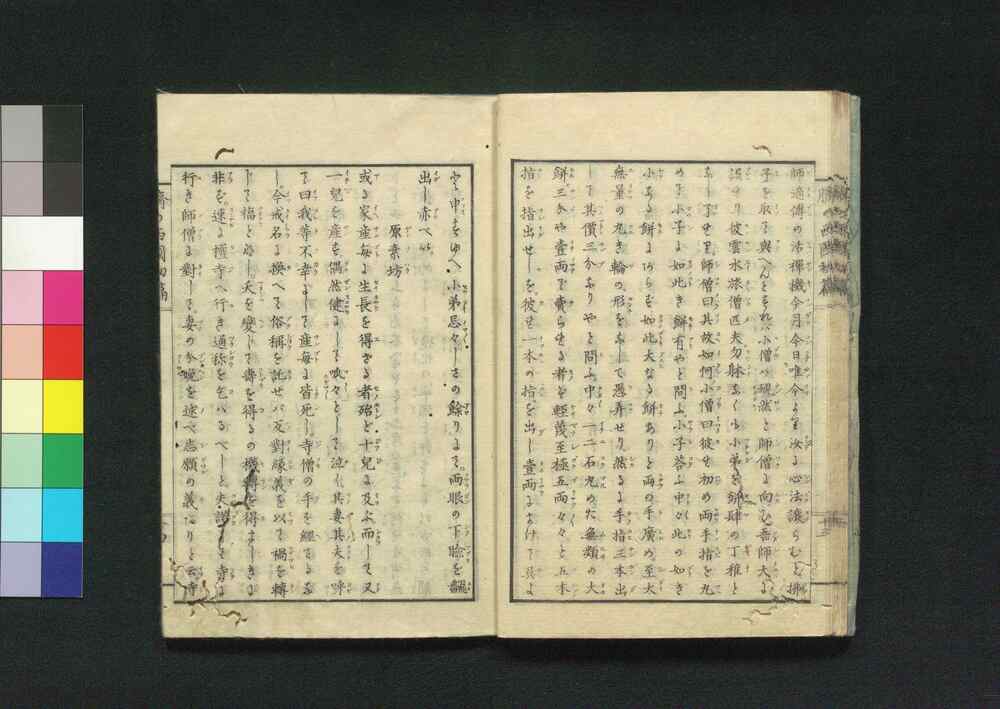 師適傳の活禪機今月今日唯今より汝に心法讓らむと拂
子を取て與へんとすれバ小僧ハ現然と師僧に向ひ吾師大に
誤れり彼雲水旅僧匹夫勿躰なくも小弟を餅肆の丁稚と
なし了せり師僧曰其故如何小僧曰彼も初め両手指を丸
めて小子よ如此き餅有やと問ふ小子荅ふ中々此の如き
小なる餅にあらず如此大なる餅ありと両の手廣め至大
無量の丸き輪の形をなして愚弄せり然るに手指三本出
して其價三分なりやと問ふ中々一二石九のた無類の大
餅三分や壹両で賣らるる者を輕蔑至極五両々々と五本
指を指出せしを彼も一本の指を出し壹両にまけて呉よ
と申をゆへ小弟忌々しさの餘りまで両眼の下瞼を翻
出し赤べい
原素坊
或る家産毎に生長を得ざる者殆ど十兒に及ぶ而して又
一兒を産を偶然健にして呱々として泣く其妻其夫を呼
て曰我等不幸にして産毎に皆死し寺僧の手を經てるな
し今戒名に換へて俗稱を託せバ反對緣義を以て禍を轉
じて福と為し夭を變じて壽を得るの機轉を得よしきに
非を速に檀寺へ行き通称を乞ハるべしと夫諾して寺に
行き師僧に對して妻の今晩を速べ志願の義なりと云時